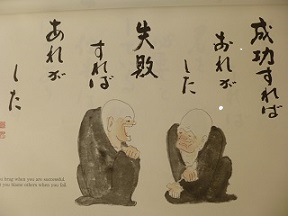 成功すれば
おれが
した
失敗
すれば
あれが
した
brag when you are successful,
you blame others when you fail.